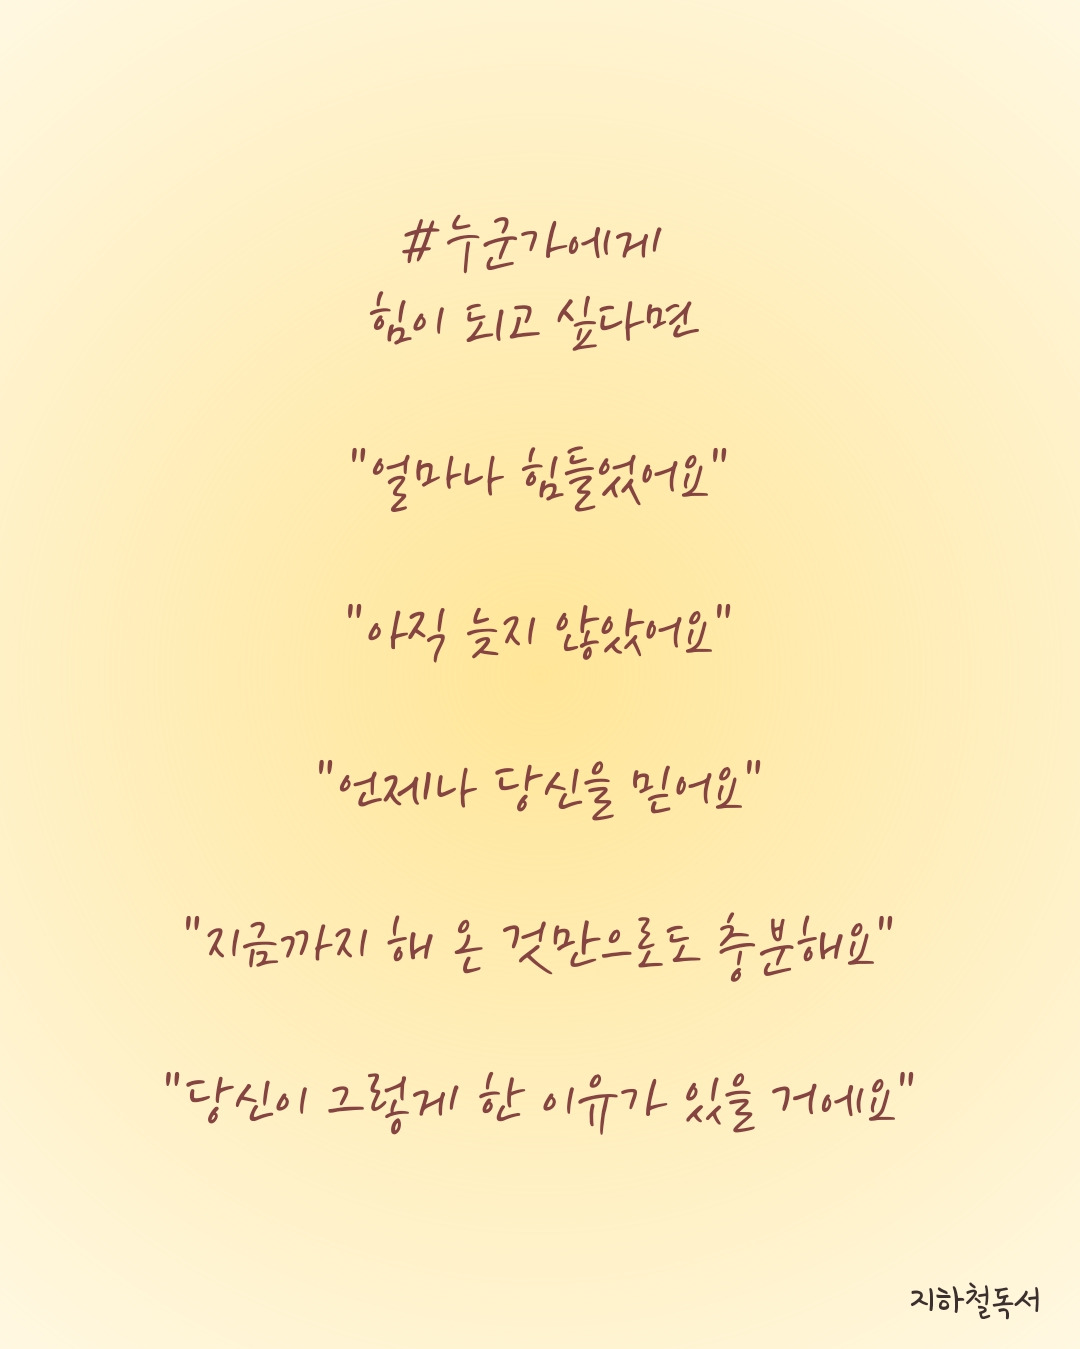 #누군가에게
힘이 되고 싶다면
"얼마나 힘들었어요"
"아직 늦지 않았어요"
"언제나 당신을 믿어요"
"지금까지 해 온 것만으로도 충분해요"
"당신이 그렇게 한 이유가 있을 거에요"
지하철독서